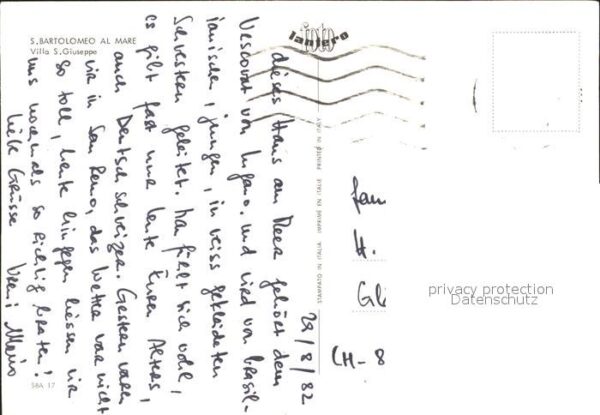 S. BARTOLOMEO AL MARE
Villa S. Giuseppe
foto
lanfero
29/8/82
dieses Haus am Meer gehört dem
Vescovat von Lugano. und wird von brasil-
ianischen, jungen, in weiss gekleideten
Schwestern geleitet. Man fühlt sich wohl,
es gibt fast nur Leute Euren Alters,
auch Deutschschweizer. Gestern waren
wir in San Remo, das Wetter war nicht
so toll, heute hingegen liessen wir
uns nochmals so richtig braten!
Liebe Grüsse
STAMPATO IN ITALIA IMPRIMÉ EN ITALIE PRINTED IN ITALY
Fam
H.
Gli
CH-8
privacy protection
Datenschutz
SBA 17